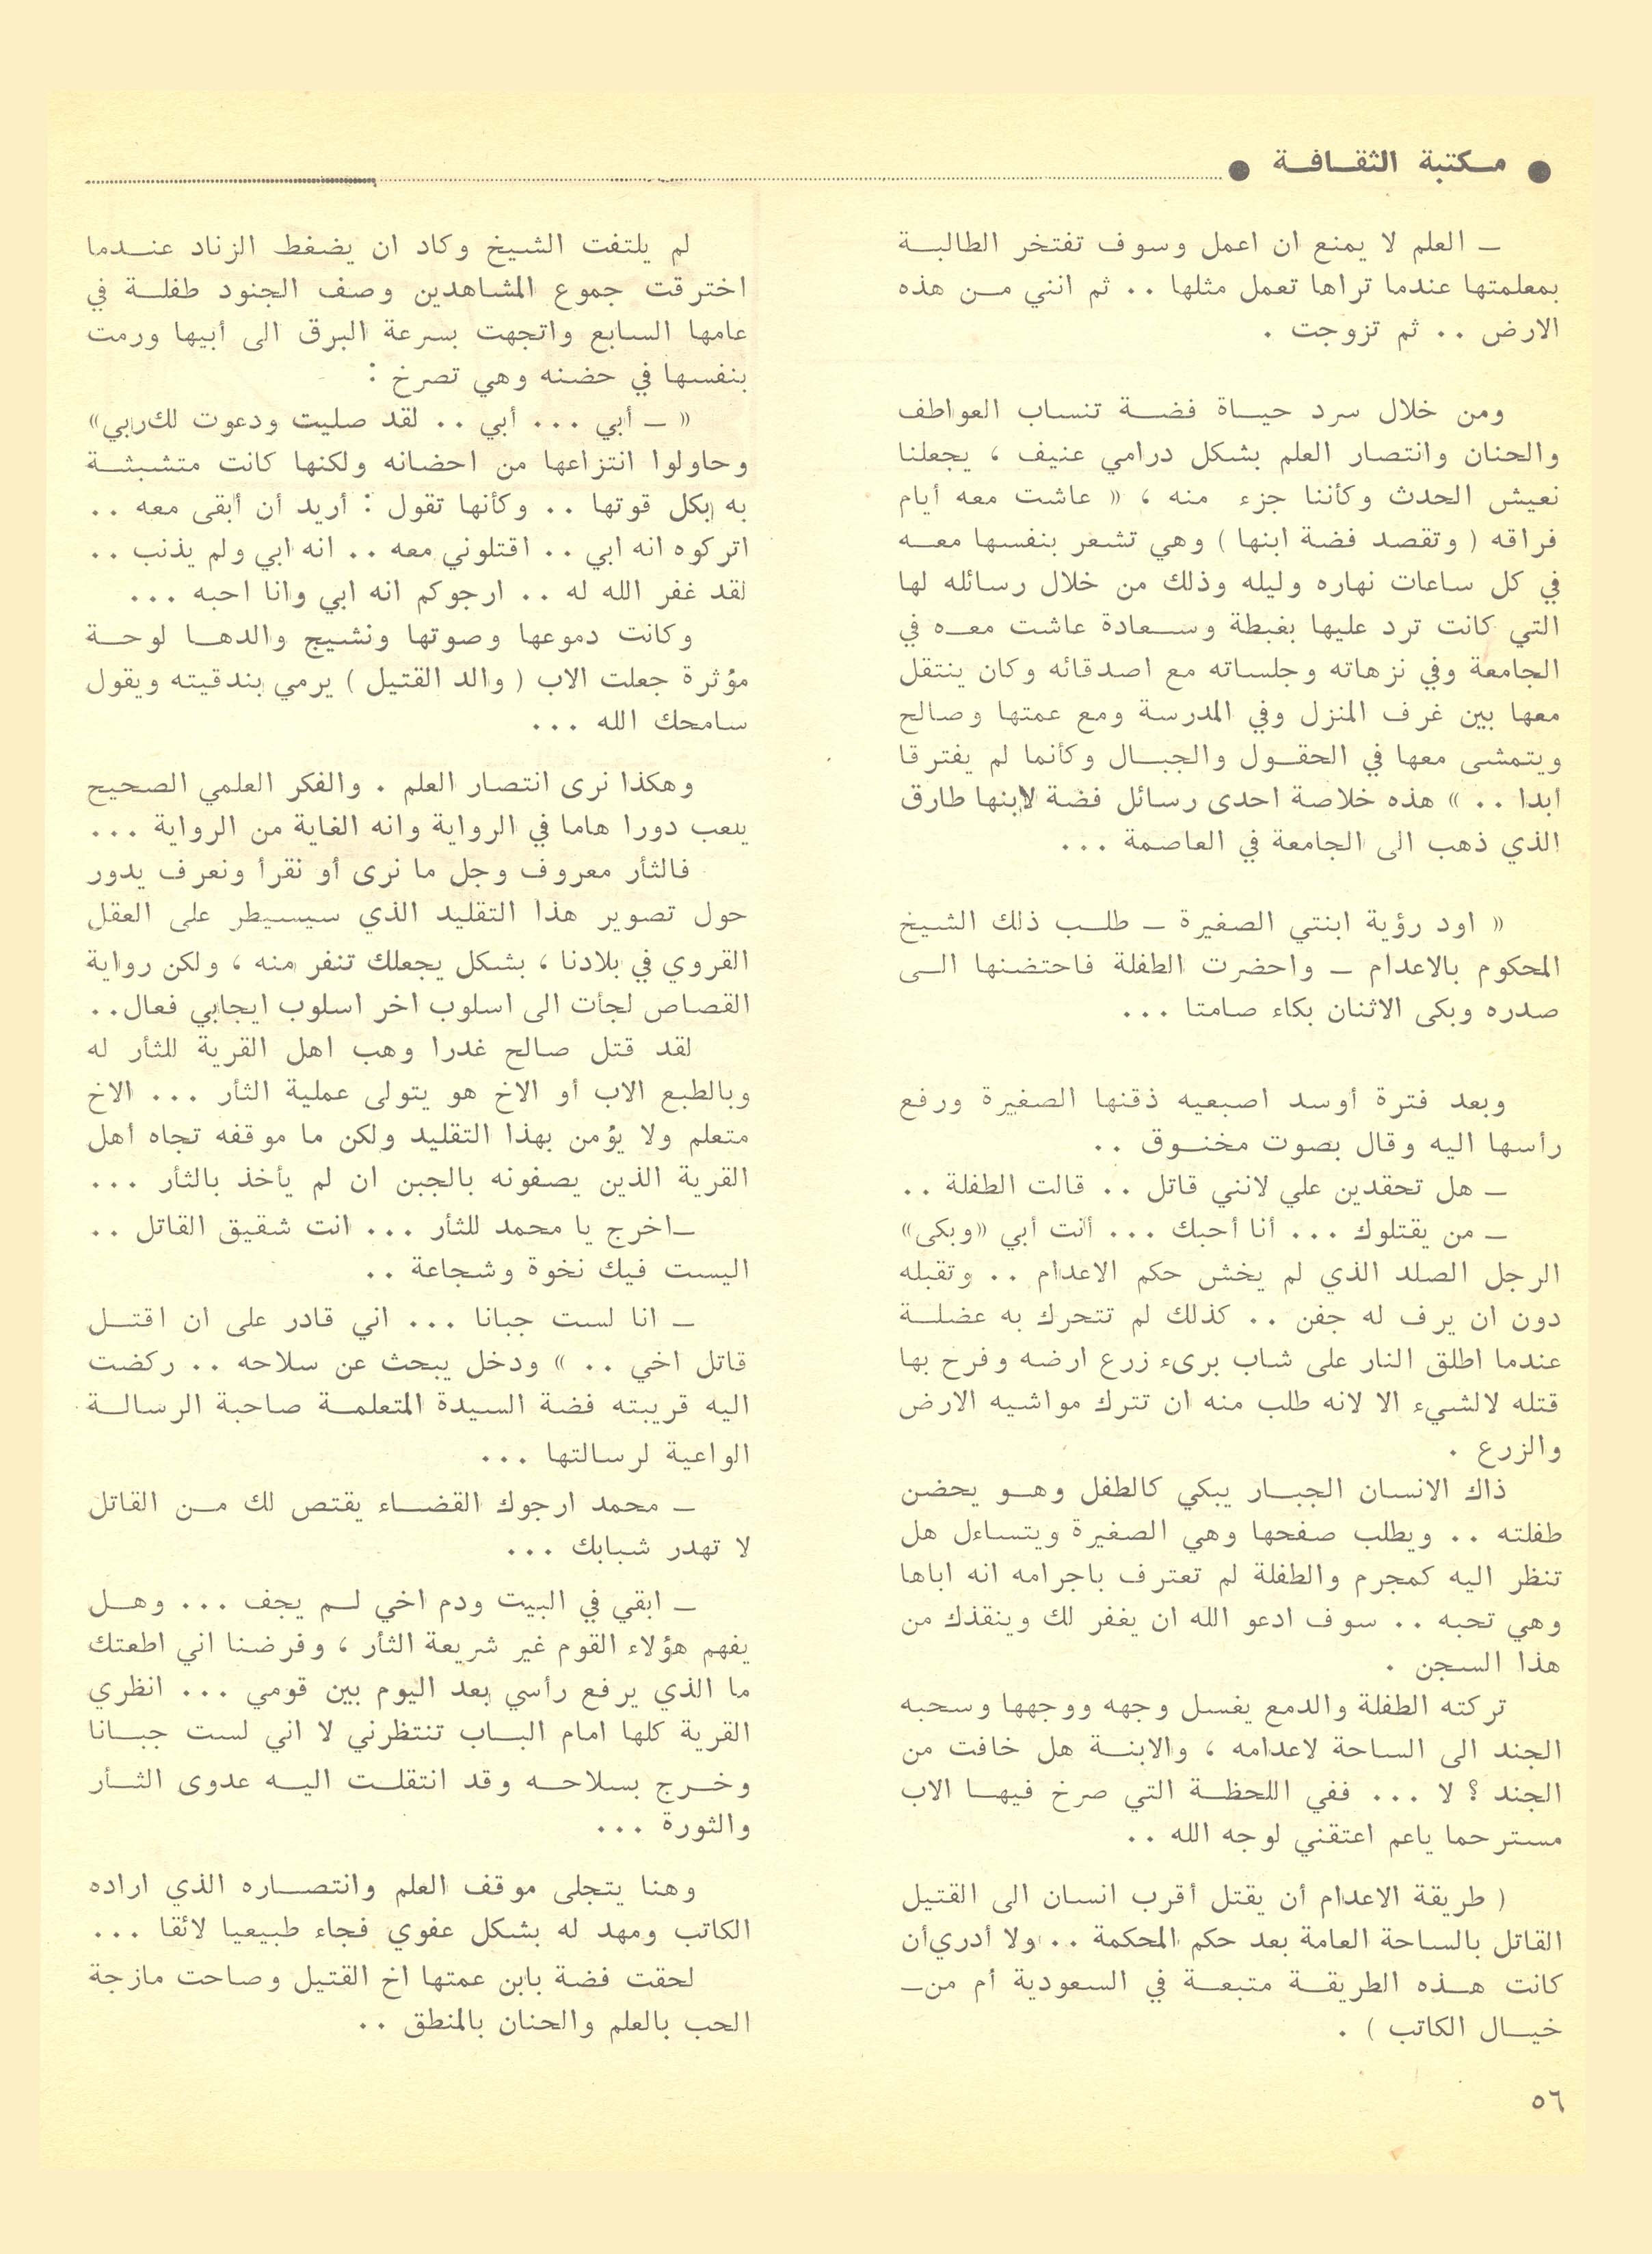 ● مكتبة الثقافة ●
ــ العلم لا يمنع ان اعمل وسوف تفتخر الطالبة
بمعلمتها عندما تراها تعمل مثلها .. ثم انني من هذه
الارض .. ثم تزوجت .
ومن خلال سرد حياة فضة تنساب العواطف
والحنان وانتصار العلم بشكل درامي عنيف ، يجعلنا
نعيش الحدث وكأننا جزء منه ، « عاشت معه أيام
فراقه ( وتقصد فضة ابنها ) وهي تشعر بنفسها معه
في كل ساعات نهاره وليله وذلك من خلال رسائله لها
التي كانت ترد عليها بغبطة وسعادة عاشت معه في
الجامعة وفي نزهاته وجلساته مع اصدقائه وكان ينتقل
معها بين غرف المنزل وفي المدرسة ومع عمتها وصالح
ويتمشى معها في الحقول والجبال وكأنما لم يفترقا
ابدا .. » هذه خلاصة احدى رسائل فضة لابنها طارق
الذي ذهب الى الجامعة في العاصمة ...
« اود رؤية ابنتي الصغيرة ــ طلب ذلك الشيخ
المحكوم بالاعدام ــ واحضرت الطفلة فاحتضنها الى
صدره وبكى الاثنان بكاء صامتا ...
وبعد فترة أوسد اصبعيه ذقنها الصغيرة ورفع
رأسها اليه وقال بصوت مخنوق ..
ــ هل تحقدين علي لانني قاتل .. قالت الطفلة ..
ــ من يقتلوك ... أنا أحبك ... أنت أبي «وبكى»
الرجل الصلد الذي لم يخش حكم الاعدام .. وتقبله
دون ان يرف له جفن .. كذلك لم تتحرك به عضلة
عندما اطلق النار على شاب برىء زرع ارضه وفرح بها
قتله لالشيء الا لانه طلب منه ان تترك مواشيه الارض
والزرع .
ذاك الانسان الجبار يبكي كالطفل وهو يحضن
طفلته .. ويطلب صفحها وهي الصغيرة ويتساءل هل
تنظر اليه كمجرم والطفلة لم تعترف باجرامه انه اباها
وهي تحبه .. سوف ادعو الله ان يغفر لك وينقذك من
هذا السجن .
تركته الطفلة والدمع يغسل وجهه ووجهها وسحبه
الجند الى الساحة لاعدامه ، والابنة هل خافت من
الجند ؟ لا ... ففي اللحظة التي صرخ فيها الاب
مسترحما ياعم اعتقني لوجه الله ..
( طريقة الاعدام أن يقتل أقرب انسان الى القتيل
القاتل بالساحة العامة بعد حكم المحكمة .. ولا أدري أن
كانت هذه الطريقة متبعة في السعودية أم من
خيال الكاتب ) .
لم يلتفت الشيخ وكاد ان يضغط الزناد عندما
اخترقت جموع المشاهدين وصف الجنود طفلة في
عامها السابع واتجهت بسرعة البرق الى أبيها ورمت
بنفسها في حضنه وهي تصرخ :
« ــ أبي ... أبي .. لقد صليت ودعوت لك ربي»
وحاولوا انتزاعها من احضانه ولكنها كانت متشبثة
به بكل قوتها .. وكأنها تقول : أريد أن أبقى معه ..
اتركوه انه ابي .. اقتلوني معه .. انه ابي ولم يذنب ..
لقد غفر الله له .. ارجوكم انه ابي وانا احبه ...
وكانت دموعها وصوتها ونشيج والدها لوحة
مؤثرة جعلت الاب ( والد القتيل ) يرمي بندقيته ويقول
سامحك الله ...
وهكذا نرى انتصار العلم . والفكر العلمي الصحيح
يلعب دورا هاما في الرواية وانه الغاية من الرواية ...
فالثأر معروف وجل ما نرى أو نقرأ ونعرف يدور
حول تصوير هذا التقليد الذي سيسيطر على العقل
القروي في بلادنا ، بشكل يجعلك تنفر منه ، ولكن رواية
القصاص لجأت الى اسلوب اخر اسلوب ايجابي فعال..
لقد قتل صالح غدرا وهب اهل القرية للثأر له
وبالطبع الاب أو الاخ هو يتولى عملية الثأر ... الاخ
متعلم ولا يؤمن بهذا التقليد ولكن ما موقفه تجاه أهل
القرية الذين يصفونه بالجبن ان لم يأخذ بالثأر ...
ــ اخرج يا محمد للثأر ... انت شقيق القاتل ..
اليست فيك نخوة وشجاعة ..
ــ انا لست جبانا ... اني قادر على ان اقتل
قاتل اخي .. » ودخل يبحث عن سلاحه .. ركضت
اليه قريبته فضة السيدة المتعلمة صاحبة الرسالة
الواعية لرسالتها ...
ــ محمد ارجوك القضاء يقتص لك من القاتل
لا تهدر شبابك ...
ــ ابقي في البيت ودم اخي لم يجف ... وهل
يفهم هؤلاء القوم غير شريعة الثأر ، وفرضنا اني اطعتك
ما الذي يرفع رأسي بعد اليوم بين قومي ... انظري
القرية كلها امام الباب تنتظرني لا اني لست جبانا
وخرج بسلاحه وقد انتقلت اليه عدوى الثأر
والثورة ...
وهنا يتجلى موقف العلم وانتصاره الذي اراده
الكاتب ومهد له بشكل عفوي فجاء طبيعيا لائقا ...
لحقت فضة بابن عمتها اخ القتيل وصاحت مازجة
الحب بالعلم والحنان بالمنطق ..
٥٦